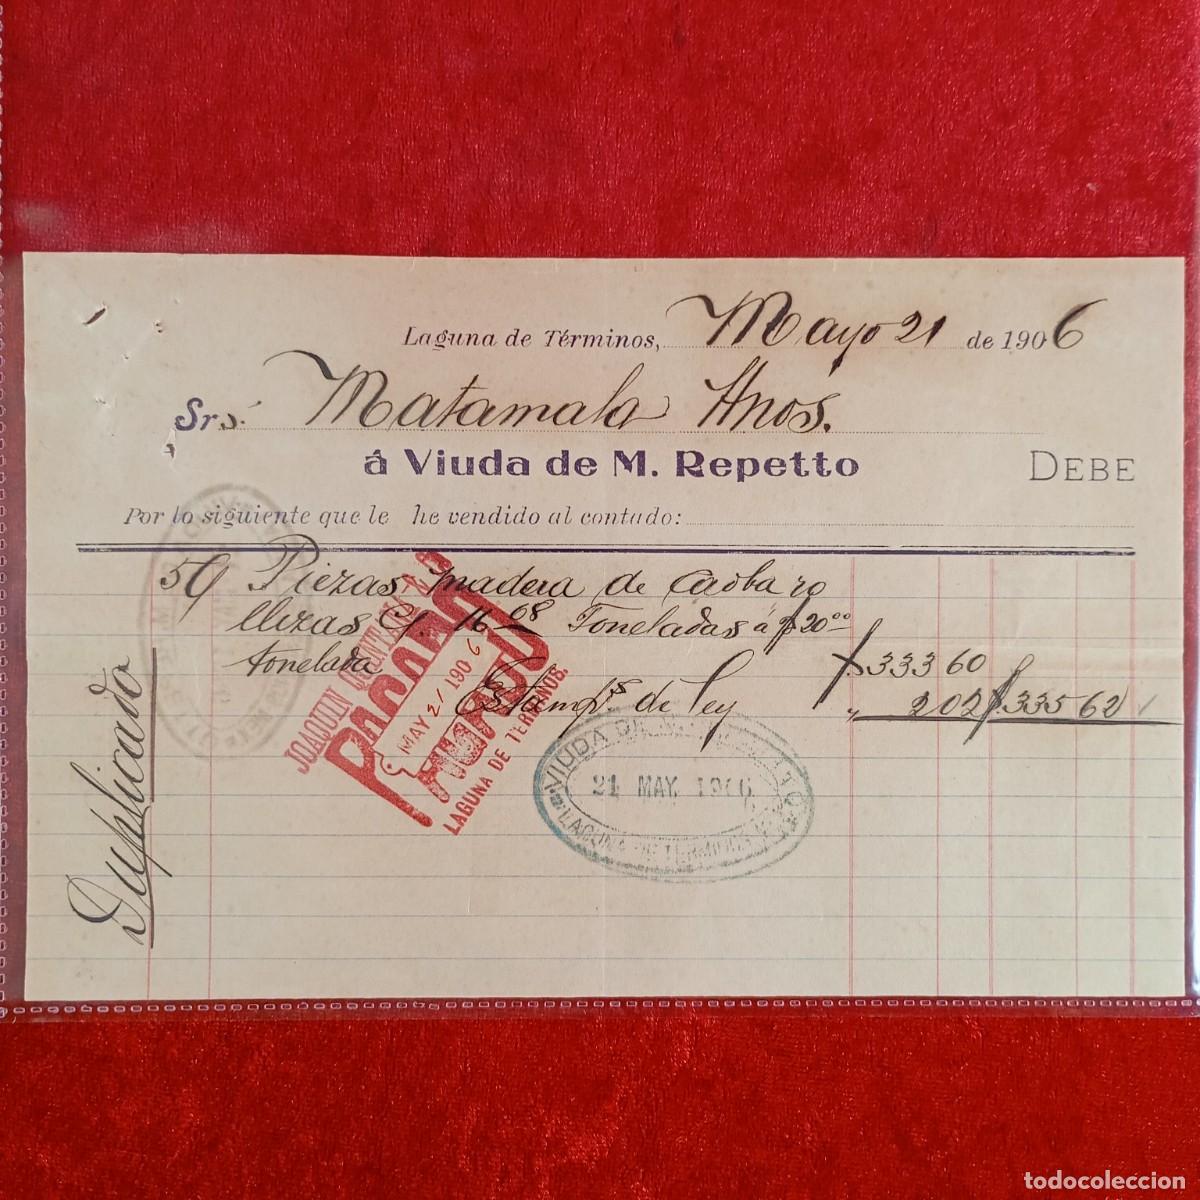 Laguna de Términos, Mayo 21 de 1906
Srs. Matamala Hnos.
á Viuda de M. Repetto DEBE
Por lo siguiente que le he vendido al contado:
59 Piezas madera de caoba ro
llizas 16 68 Toneladas á $20 00
tonelada $ 333 60
Estamp.s de ley " 2 02 $ 335 62
Duplicado
JOAQUIN QUINTANA
PAGADO
MAY 21 1906
LAGUNA DE TERMINOS.
VIUDA DE M. REPETTO
21 MAY. 1906
LAGUNA DE TERMINOS
todocoleccion